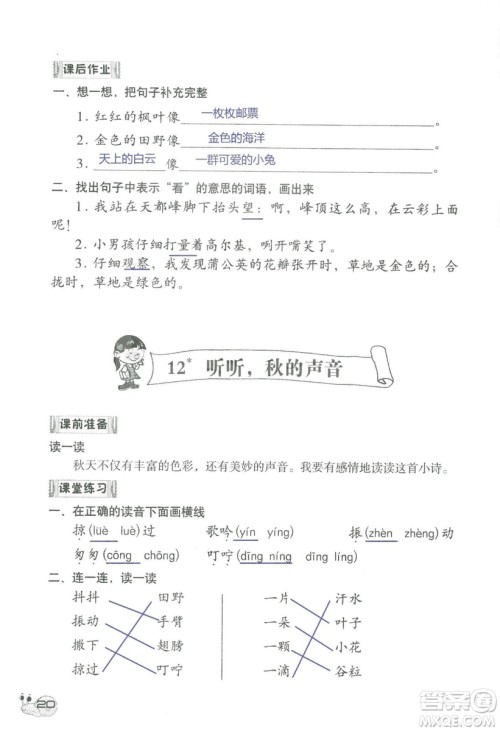 课后作业
一、想一想，把句子补充完整
1. 红红的枫叶像 一枚枚邮票 。
2. 金色的田野像 金色的海洋 。
3. 天上的白云 像 一群可爱的小兔 。
二、找出句子中表示“看”的意思的词语，画出来
1. 我站在天都峰脚下抬头望：啊，峰顶这么高，在云彩上面
呢！
2. 小男孩仔细打量着高尔基，咧开嘴笑了。
3. 仔细观察，我发现蒲公英的花瓣张开时，草地是金色的；合
拢时，草地是绿色的。
12* 听听，秋的声音
课前准备
读一读
秋天不仅有丰富的色彩，还有美妙的声音。我要有感情地读读这首小诗。
课堂练习
一、在正确的读音下面画横线
掠(lüè luè)过 歌吟(yín yíng) 振(zhèn zhèng)动
匆匆(cōng chōng) 叮咛(dīng níng dīng nín)
二、连一连，读一读
抖抖 田野 一片 汗水
振动 手臂 一朵 叶子
撒下 翅膀 一颗 小花
掠过 叮咛 一滴 谷粒
20
答案圈
MXQE.COM